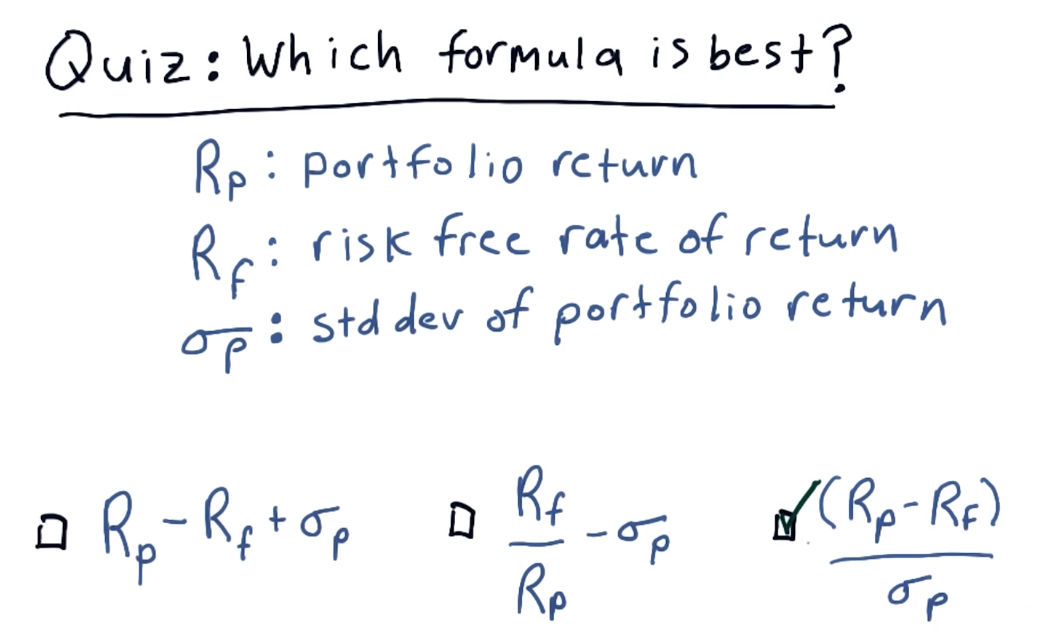 Quiz: Which formula is best?
Rp: portfolio return
Rf: risk free rate of return
σp: std dev of portfolio return
☐ Rp - Rf + σp ☐ Rf/Rp - σp ☑ (Rp - RF)/σp